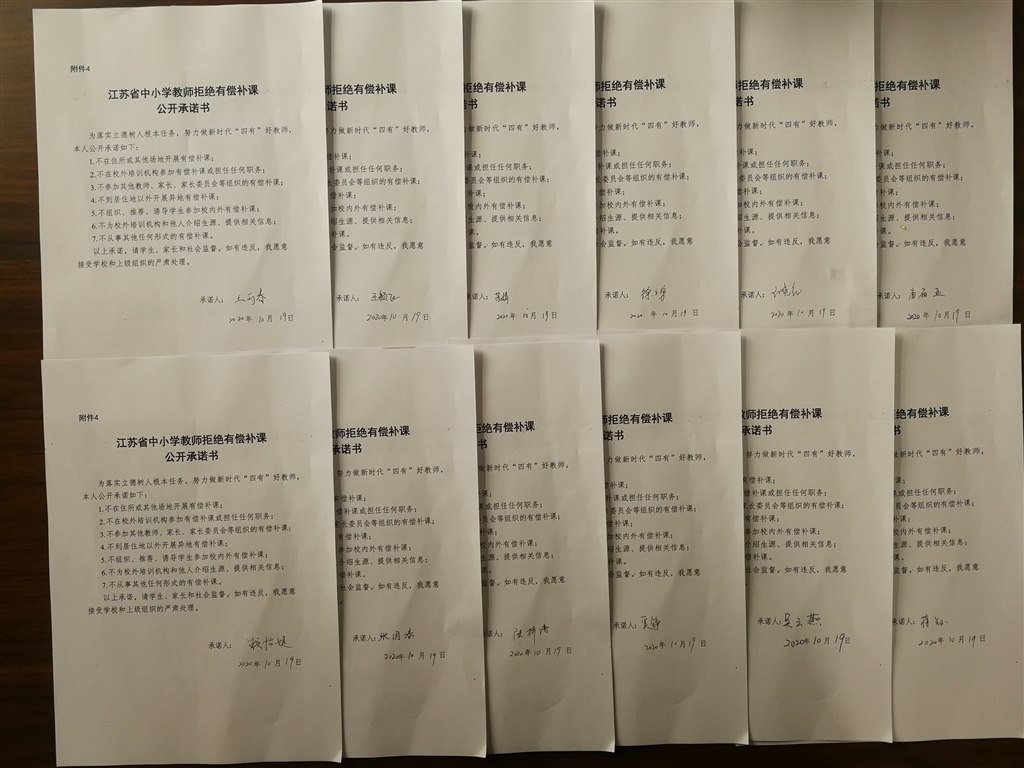 附件4
江苏省中小学教师拒绝有偿补课
公开承诺书
为落实立德树人根本任务，努力做新时代“四有”好教师，
本人公开承诺如下：
1.不在住所或其他场地开展有偿补课；
2.不在校外培训机构参加有偿补课或担任任何职务；
3.不参加其他教师、家长、家长委员会等组织的有偿补课；
4.不到居住地以外开展异地有偿补课；
5.不组织、推荐、诱导学生参加校内外有偿补课；
6.不为校外培训机构和他人介绍生源、提供相关信息；
7.不从事其他任何形式的有偿补课。
以上承诺，请学生、家长和社会监督。如有违反，我愿意
接受学校和上级组织的严肃处理。
承诺人：
2020年10月19日
师拒绝有偿补课
诺书
努力做新时代“四有”好教师，
补课；
课或担任任何职务；
委员会等组织的有偿补课；
补课；
加校内外有偿补课；
绍生源、提供相关信息；
课。
会监督。如有违反，我愿意
承诺人：
2020年10月19日
拒绝有偿补课
诺书
力做新时代“四有”好教师，
补课；
课或担任任何职务；
委员会等组织的有偿补课；
补课；
校内外有偿补课；
生源、提供相关信息；
课。
监督。如有违反，我愿意
承诺人：
2020年10月19日
师拒绝有偿补课
诺书
力做新时代“四有”好教师，
补课；
课或担任任何职务；
长委员会等组织的有偿补课；
补课；
加校内外有偿补课；
绍生源、提供相关信息；
课。
会监督。如有违反，我愿意
承诺人：
2020年10月19日
师拒绝有偿补课
诺书
力做新时代“四有”好教师，
补课；
课或担任任何职务；
委员会等组织的有偿补课；
补课；
加校内外有偿补课；
绍生源、提供相关信息；
课。
会监督。如有违反，我愿意
承诺人：
2020年10月19日
拒绝有偿补课
书
力做新时代“四有”好教师，
课；
或担任任何职务；
委员会等组织的有偿补课；
补课；
校内外有偿补课；
生源、提供相关信息；
课。
监督。如有违反，我愿意
承诺人：
2020年10月19日
附件4
江苏省中小学教师拒绝有偿补课
公开承诺书
为落实立德树人根本任务，努力做新时代“四有”好教师，
本人公开承诺如下：
1.不在住所或其他场地开展有偿补课；
2.不在校外培训机构参加有偿补课或担任任何职务；
3.不参加其他教师、家长、家长委员会等组织的有偿补课；
4.不到居住地以外开展异地有偿补课；
5.不组织、推荐、诱导学生参加校内外有偿补课；
6.不为校外培训机构和他人介绍生源、提供相关信息；
7.不从事其他任何形式的有偿补课。
以上承诺，请学生、家长和社会监督。如有违反，我愿意
接受学校和上级组织的严肃处理。
承诺人：
2020年10月19日
教师拒绝有偿补课
承诺书
努力做新时代“四有”好教师，
有偿补课；
补课或担任任何职务；
家长委员会等组织的有偿补课；
有偿补课；
参加校内外有偿补课；
介绍生源、提供相关信息；
偿补课。
社会监督。如有违反，我愿意
承诺人：张国春
2020年10月19日
拒绝有偿补课
诺书
力做新时代“四有”好教师，
补课；
课或担任任何职务；
委员会等组织的有偿补课；
补课；
校内外有偿补课；
绍生源、提供相关信息；
课。
会监督。如有违反，我愿意
承诺人：
2020年10月19日
师拒绝有偿补课
诺书
力做新时代“四有”好教师，
偿补课；
补课或担任任何职务；
长委员会等组织的有偿补课；
偿补课；
加校内外有偿补课；
介绍生源、提供相关信息；
补课。
会监督。如有违反，我愿意
承诺人：
2020年10月19日
教师拒绝有偿补课
承诺书
努力做新时代“四有”好教师，
有偿补课；
补课或担任任何职务；
家长委员会等组织的有偿补课；
有偿补课；
参加校内外有偿补课；
介绍生源、提供相关信息；
偿补课。
社会监督。如有违反，我愿意
承诺人：吴立燕
2020年10月19日
绝有偿补课
书
做新时代“四有”好教师，
课；
或担任任何职务；
员会等组织的有偿补课；
课；
校内外有偿补课；
生源、提供相关信息；
课。
监督。如有违反，我愿意
承诺人：
2020年10月19日